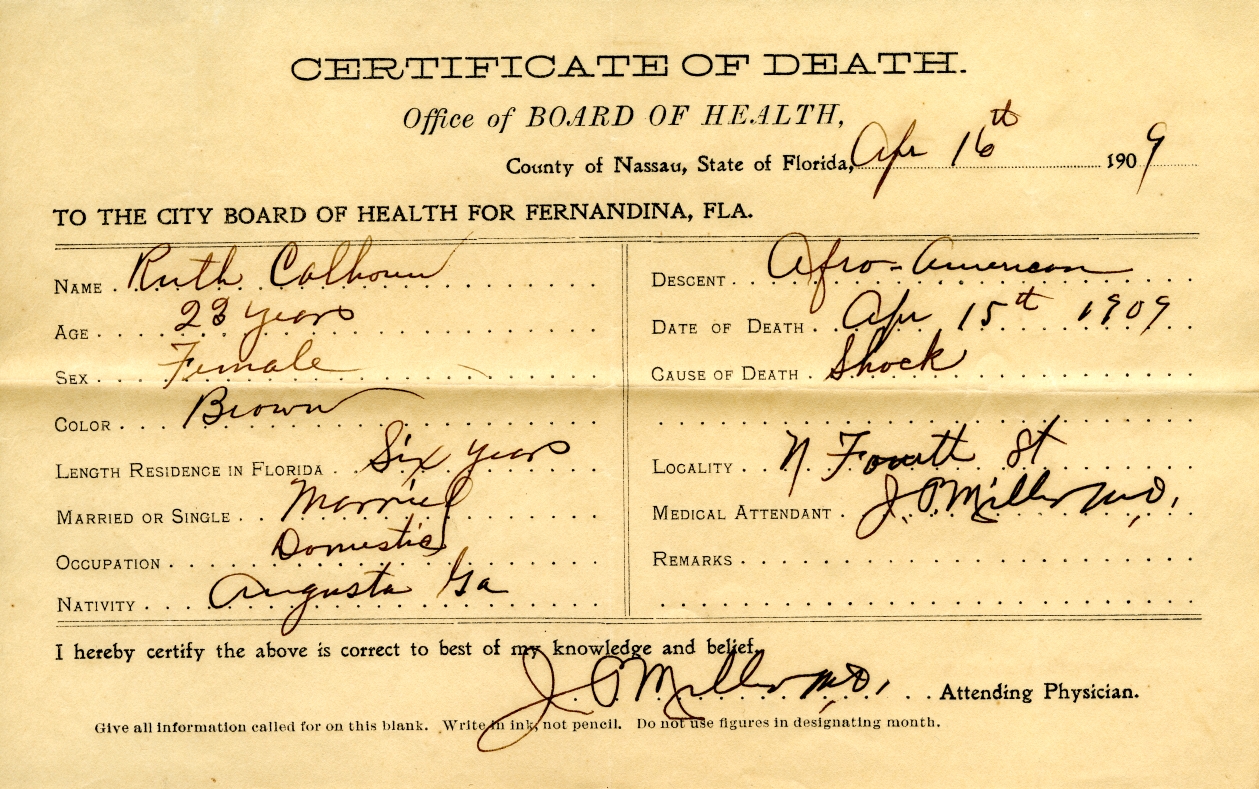 CERTIFICATE OF DEATH.
Office of BOARD OF HEALTH,
County of Nassau, State of Florida, Apr 16th 1909
TO THE CITY BOARD OF HEALTH FOR FERNANDINA, FLA.
NAME Ruth Calhoun
AGE 23 years
SEX Female
COLOR Brown
LENGTH RESIDENCE IN FLORIDA Six years
MARRIED OR SINGLE Married
OCCUPATION Domestic
NATIVITY Augusta Ga
DESCENT Afro-American
DATE OF DEATH Apr 15th 1909
CAUSE OF DEATH Shock
LOCALITY N Fourth St
MEDICAL ATTENDANT J. Miller M.D.
REMARKS
I hereby certify the above is correct to best of my knowledge and belief,
J. Miller M.D. Attending Physician.
Give all information called for on this blank. Write in ink, not pencil. Do not use figures in designating month.